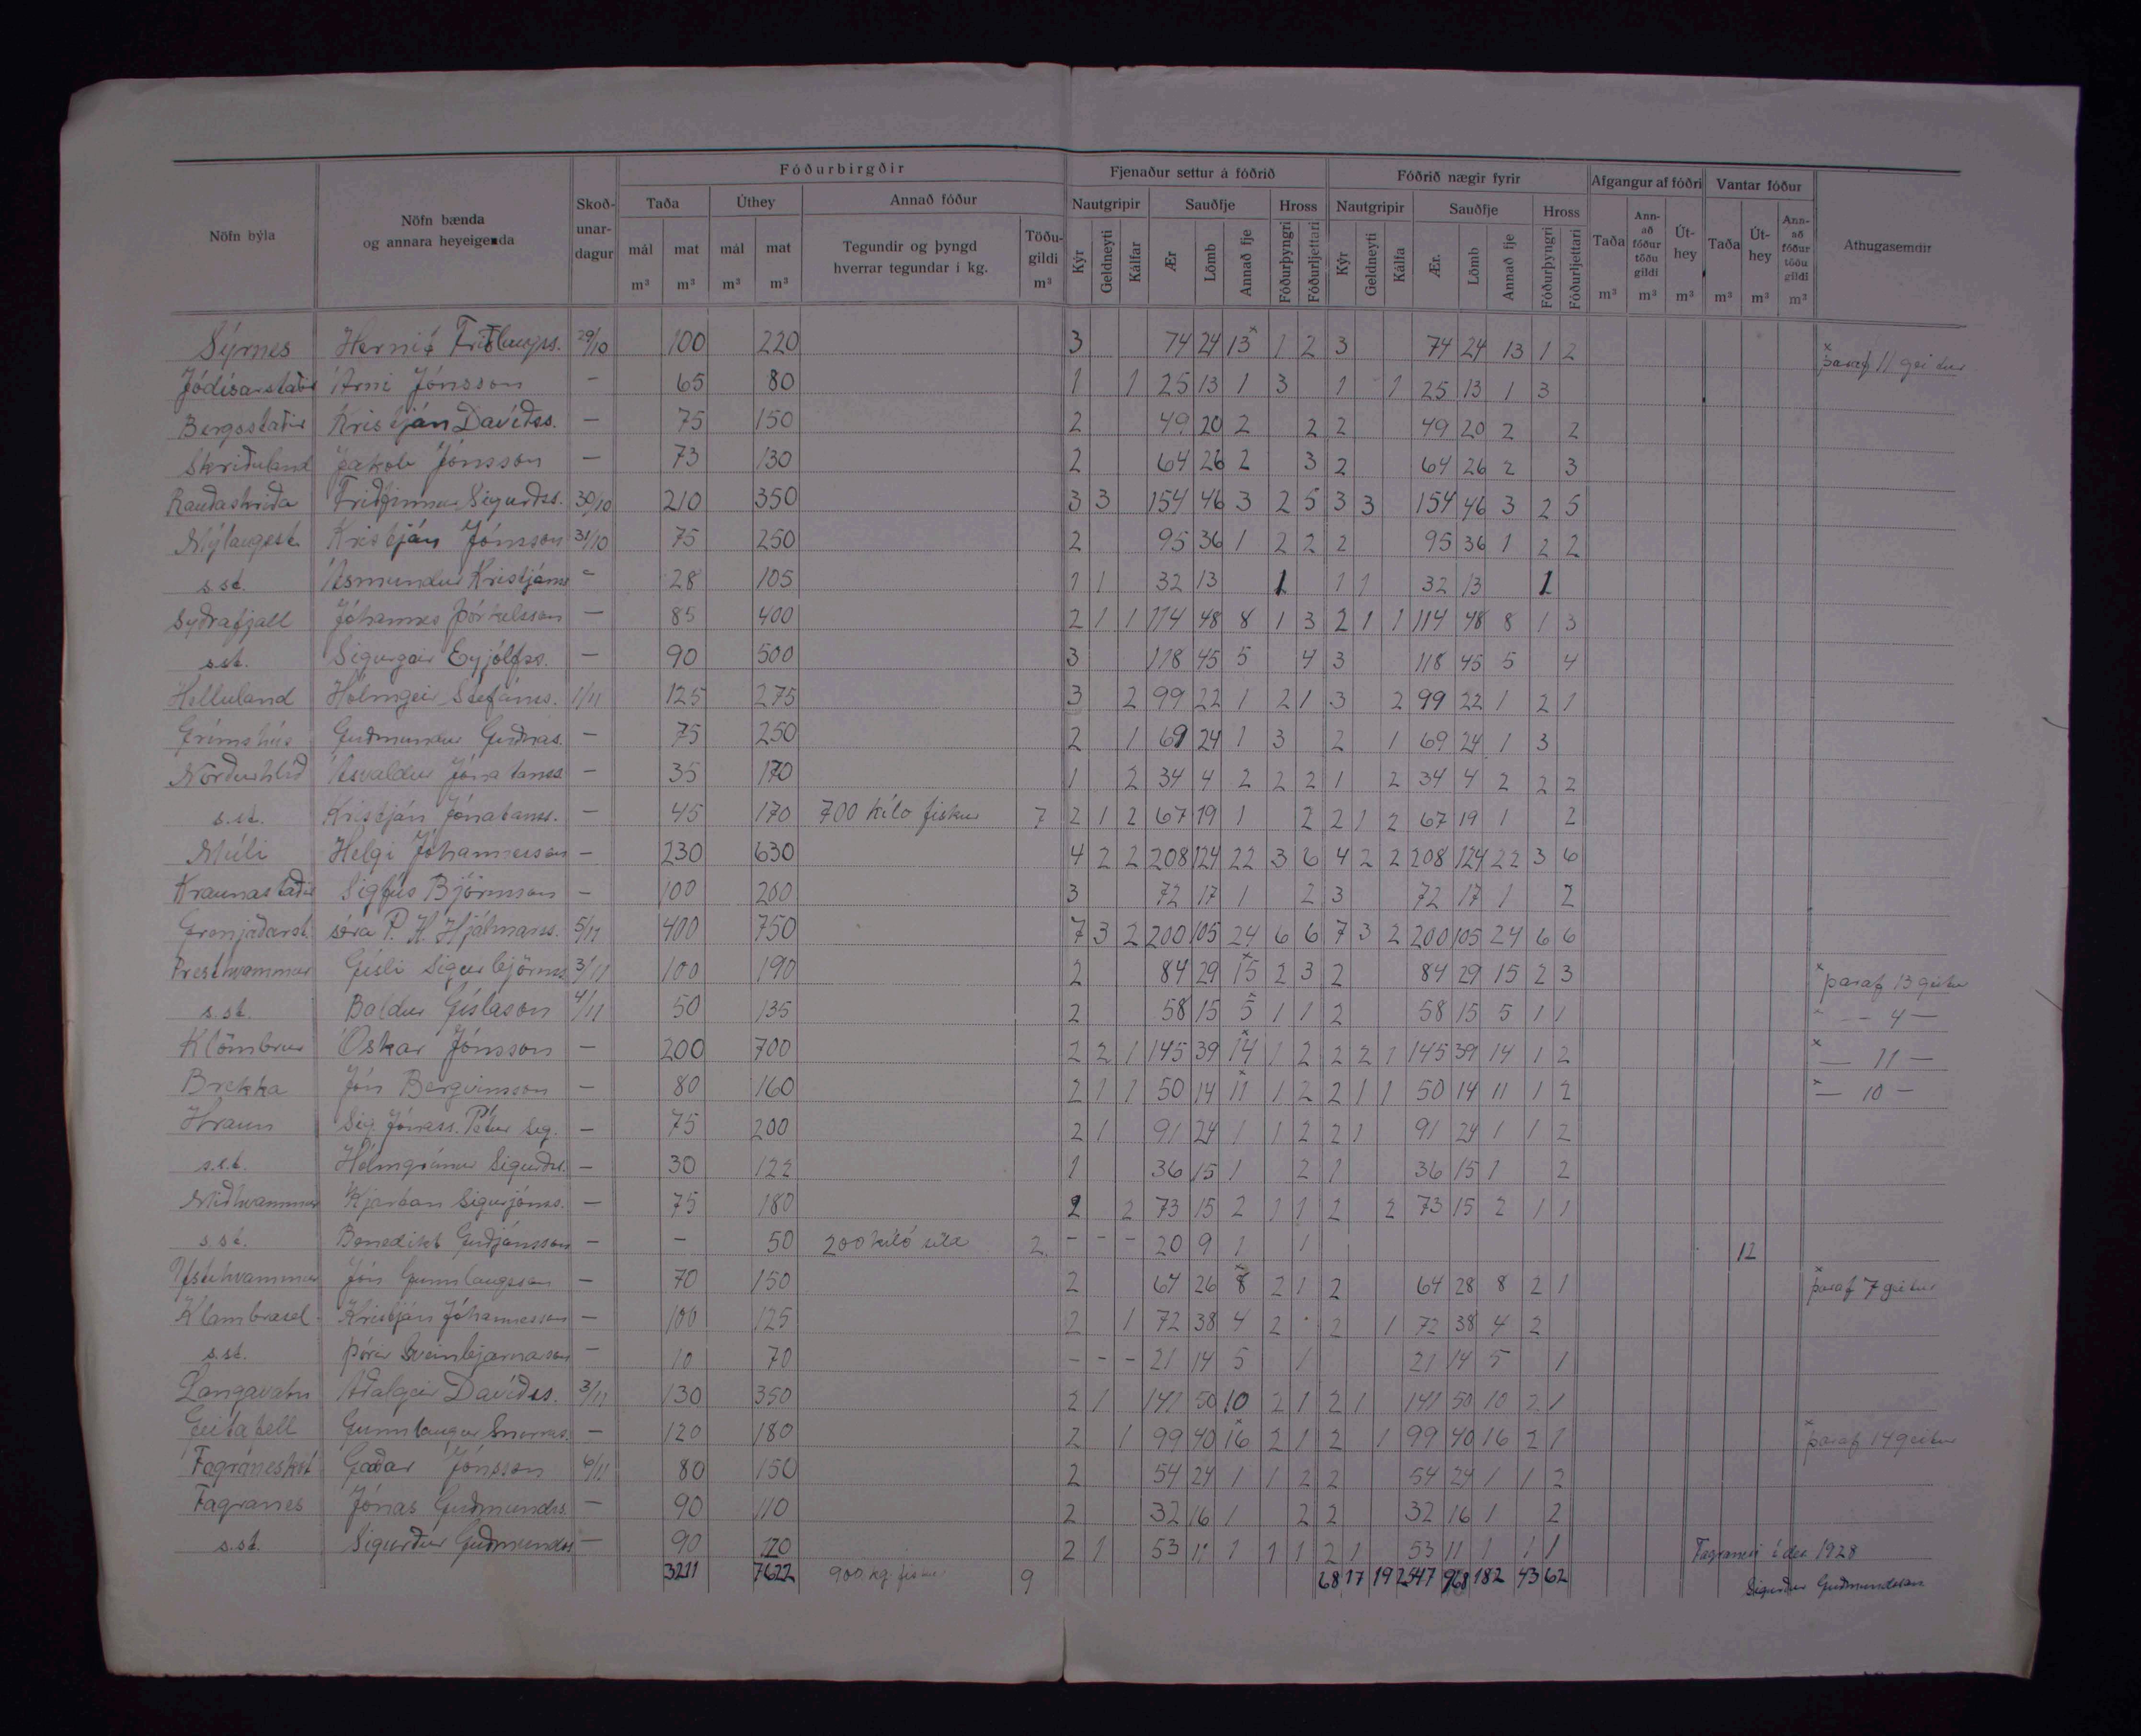 Fóðurbirgðir Fjenaður settur á fóðrið Fóðrið nægir fyrir Afgangur af fóðri Vantar fóður
Nöfn býla Nöfn bænda og annara heyeigenda Skoðunardagur Taða Úthey Annað fóður Nautgripir Sauðfje Hross Nautgripir Sauðfje Hross Athugasemdir
mál m³ mat m³ mál m³ mat m³ Tegundir og þyngd hverrar tegundar í kg. Töðugildi m³ Kýr Geldneyti Kálfar Ær Lömb Annað fje Fóðurþyngri Fóðurljettari Kýr Geldneyti Kálfa Ær. Lömb Annað fje Fóðurþyngri Fóðurljettari Taða m³ Annað fóður töðu gildi m³ Úthey m³ Taða m³ Úthey m³ Annað fóður töðu gildi m³
Sýrnes Hernit Friðlaugss. 29/10 100 220 3 74 24 13 x 1 2 3 74 24 13 1 2 x þaraf 11 geitur
Jódísarstaðir Árni Jónsson — 65 80 1 1 25 13 1 3 1 1 25 13 1 3
Bergsstaðir Kristján Davíðss. — 75 150 2 49 20 2 2 2 49 20 2 2
Skriðuland Jakob Jónsson — 73 130 2 64 26 2 3 2 64 26 2 3
Rauðaskriða Friðfinnur Sigurðss. 30/10 210 350 3 3 154 46 3 2 5 3 3 154 46 3 2 5
Mýlaugsst. Kristján Jónsson 31/10 75 250 2 95 36 1 2 2 2 95 36 1 2 2
s.st. Ásmundur Kristjánss - 28 105 1 1 32 13 1 1 1 32 13 1
Syðrafjall Jóhannes Þórkelsson — 85 400 2 1 1 114 48 8 1 3 2 1 1 114 48 8 1 3
s.st. Sigurgeir Eyjólfss. — 90 500 3 118 45 5 4 3 118 45 5 4
Helluland Hólmgeir Stefánss. 1/11 125 275 3 2 99 22 1 2 1 3 2 99 22 1 2 1
Grímshús Guðmundur Guðnas. — 75 250 2 1 69 24 1 3 2 1 69 24 1 3
Norðurhlíð Ásvaldur Jónatanss — 35 170 1 2 34 4 2 2 2 1 2 34 4 2 2 2
s.st. Kristján Jónatanss. — 45 170 700 kíló fiskur 7 2 1 2 67 19 1 2 2 1 2 67 19 1 2
Múli Helgi Jóhannesson — 230 630 4 2 2 208 124 22 3 6 4 2 2 208 124 22 3 6
Kraunastaðir Sigfús Björnsson — 100 200 3 72 17 1 2 3 72 17 1 2
Grenjaðarst. séra P. H. Hjálmarss. 5/11 400 750 7 3 2 200 105 24 6 6 7 3 2 200 105 24 6 6
Presthvammur Gísli Sigurbjörnss 3/11 100 190 2 84 29 15 x 2 3 2 84 29 15 2 3 x þaraf 13 geitur
s.st. Baldur Gíslason 4/11 50 135 2 58 15 5 x 1 1 2 58 15 5 1 1 - — 4 —
Klömbrur Óskar Jónsson — 200 700 2 2 1 145 39 14 x 1 2 2 2 1 145 39 14 1 2 x — 11 —
Brekka Jón Bergvinsson — 80 160 2 1 1 50 14 11 x 1 2 2 1 1 50 14 11 1 2 x — 10 —
Hraun Sig. Jónass. Pétur Sig. — 75 200 2 1 91 24 1 1 2 2 1 91 24 1 1 2
s.st. Hólmgrímur Sigurðss. — 30 122 1 36 15 1 2 1 36 15 1 2
Miðhvammur Kjartan Sigurjónss. — 75 180 2 2 73 15 2 1 1 2 2 73 15 2 1 1
s.st. Benedikt Guðjónsson — — 50 200 kíló síld 2. - - - 20 9 1 1 12
Ystihvammur Jón Gunnlaugsson — 70 150 2 64 26 8 x 2 1 2 64 28 8 2 1 x þaraf 7 geitur
Klambrasel Kristján Jóhannesson — 100 125 2 1 72 38 4 2 2 1 72 38 4 2
s.st. Þórir Sveinbjarnarson — 10 70 - - - 21 14 5 1 21 14 5 1
Langavatn Aðalgeir Davíðss. 3/11 130 350 2 1 141 50 10 2 1 2 1 141 50 10 2 1
Geitafell Gunnlaugur Snorras. — 120 180 2 1 99 40 16 x 2 1 2 1 99 40 16 2 1 x þaraf 14 geitur
Fagraneskot Garðar Jónsson 6/11 80 150 2 54 24 1 1 2 2 54 24 1 1 2
Fagranes Jónas Guðmundss. — 90 110 2 32 16 1 2 2 32 16 1 2
s.st. Sigurður Guðmundss — 90 120 2 1 53 11 1 1 1 2 1 53 11 1 1 1 Fagranesi í des 1928
3211 7622 900 kg. fiskur 9 68 17 19 2547 968 182 43 62 Sigurður Guðmundsson